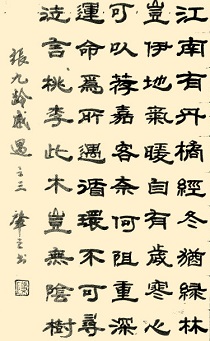 江南有丹橘經冬猶綠林
豈伊地氣暖自有歲寒心
可以荐嘉客奈何阻重深
運命爲所遇循環不可尋
徒言桃李此木豈無陰樹
張九齡感遇之三 肇书